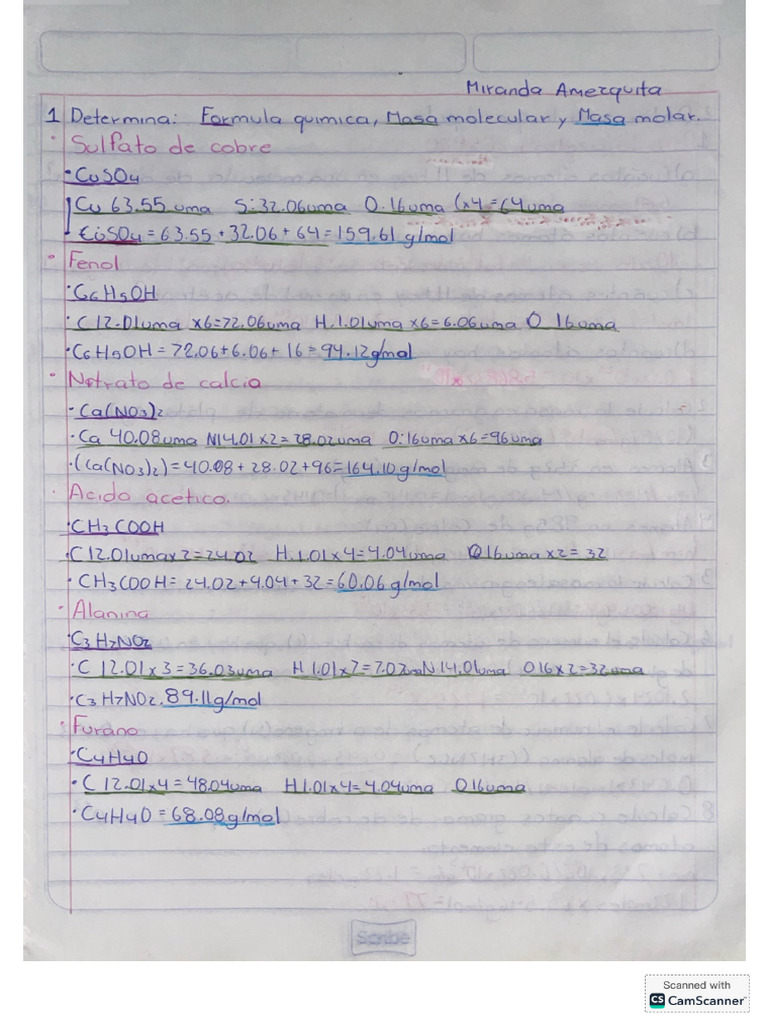 Miranda Amezquita
1 Determina: Formula quimica, Masa molecular y Masa molar.
· Sulfato de cobre
· CuSO4
Cu 63.55 uma S:32.06uma O.16uma (x4=64uma
CuSO4 = 63.55 + 32.06 + 64 = 159.61 g/mol
· Fenol
· C6H5OH
· C 12.01uma x6=72.06uma H.1.01uma x6=6.06uma O 16uma
· C6H5OH = 72.06+6.06+16=94.12g/mol
· Nitrato de calcio
· Ca(NO3)2
· Ca 40.08uma N14.01x2=28.02uma O:16uma x6=96uma
· (Ca(NO3)2)=40.08+28.02+96=164.10g/mol
· Acido acetico.
CH3COOH
C 12.01umax2=24.02 H.1.01x4=4.04uma O16uma x2=32
· CH3COOH=24.02+4.04+32=60.06 g/mol
· Alanina
C3H7NO2
· C 12.01x3=36.03uma H 1.01x7=7.07uma N 14.01uma O16x2=32uma
· C3H7NO2. 89.11g/mol
· Furano
· C4H4O
· C 12.01x4=48.04uma H1.01x4=4.04uma O16uma
· C4H4O = 68.08g/mol
Scribe
Scanned with
CS CamScanner